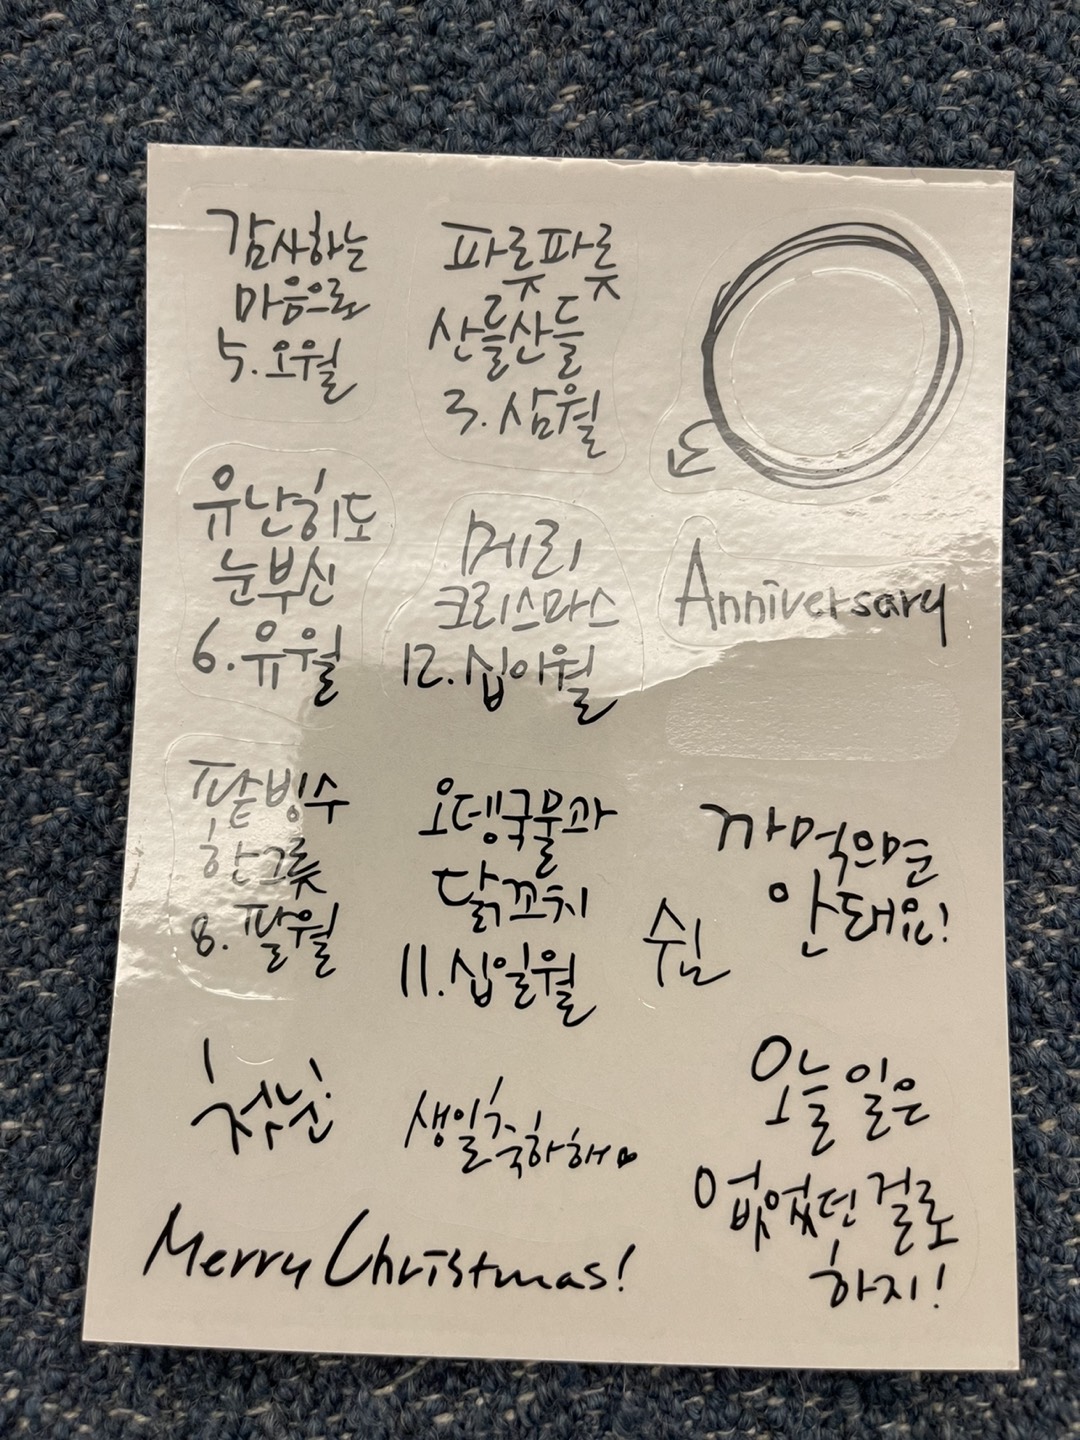 감사하는
마음으로
5. 오월
파릇파릇
산들산들
3. 삼월
유난히도
눈부신
6. 유월
메리
크리스마스
12. 십이월
Anniversary
팥빙수
한그릇
8. 팔월
오뎅국물과
닭꼬치
11. 십일월
까먹으면
안돼요!
쉼
첫눈
생일축하해
오늘 일은
없었던 걸로
하지!
Merry Christmas!